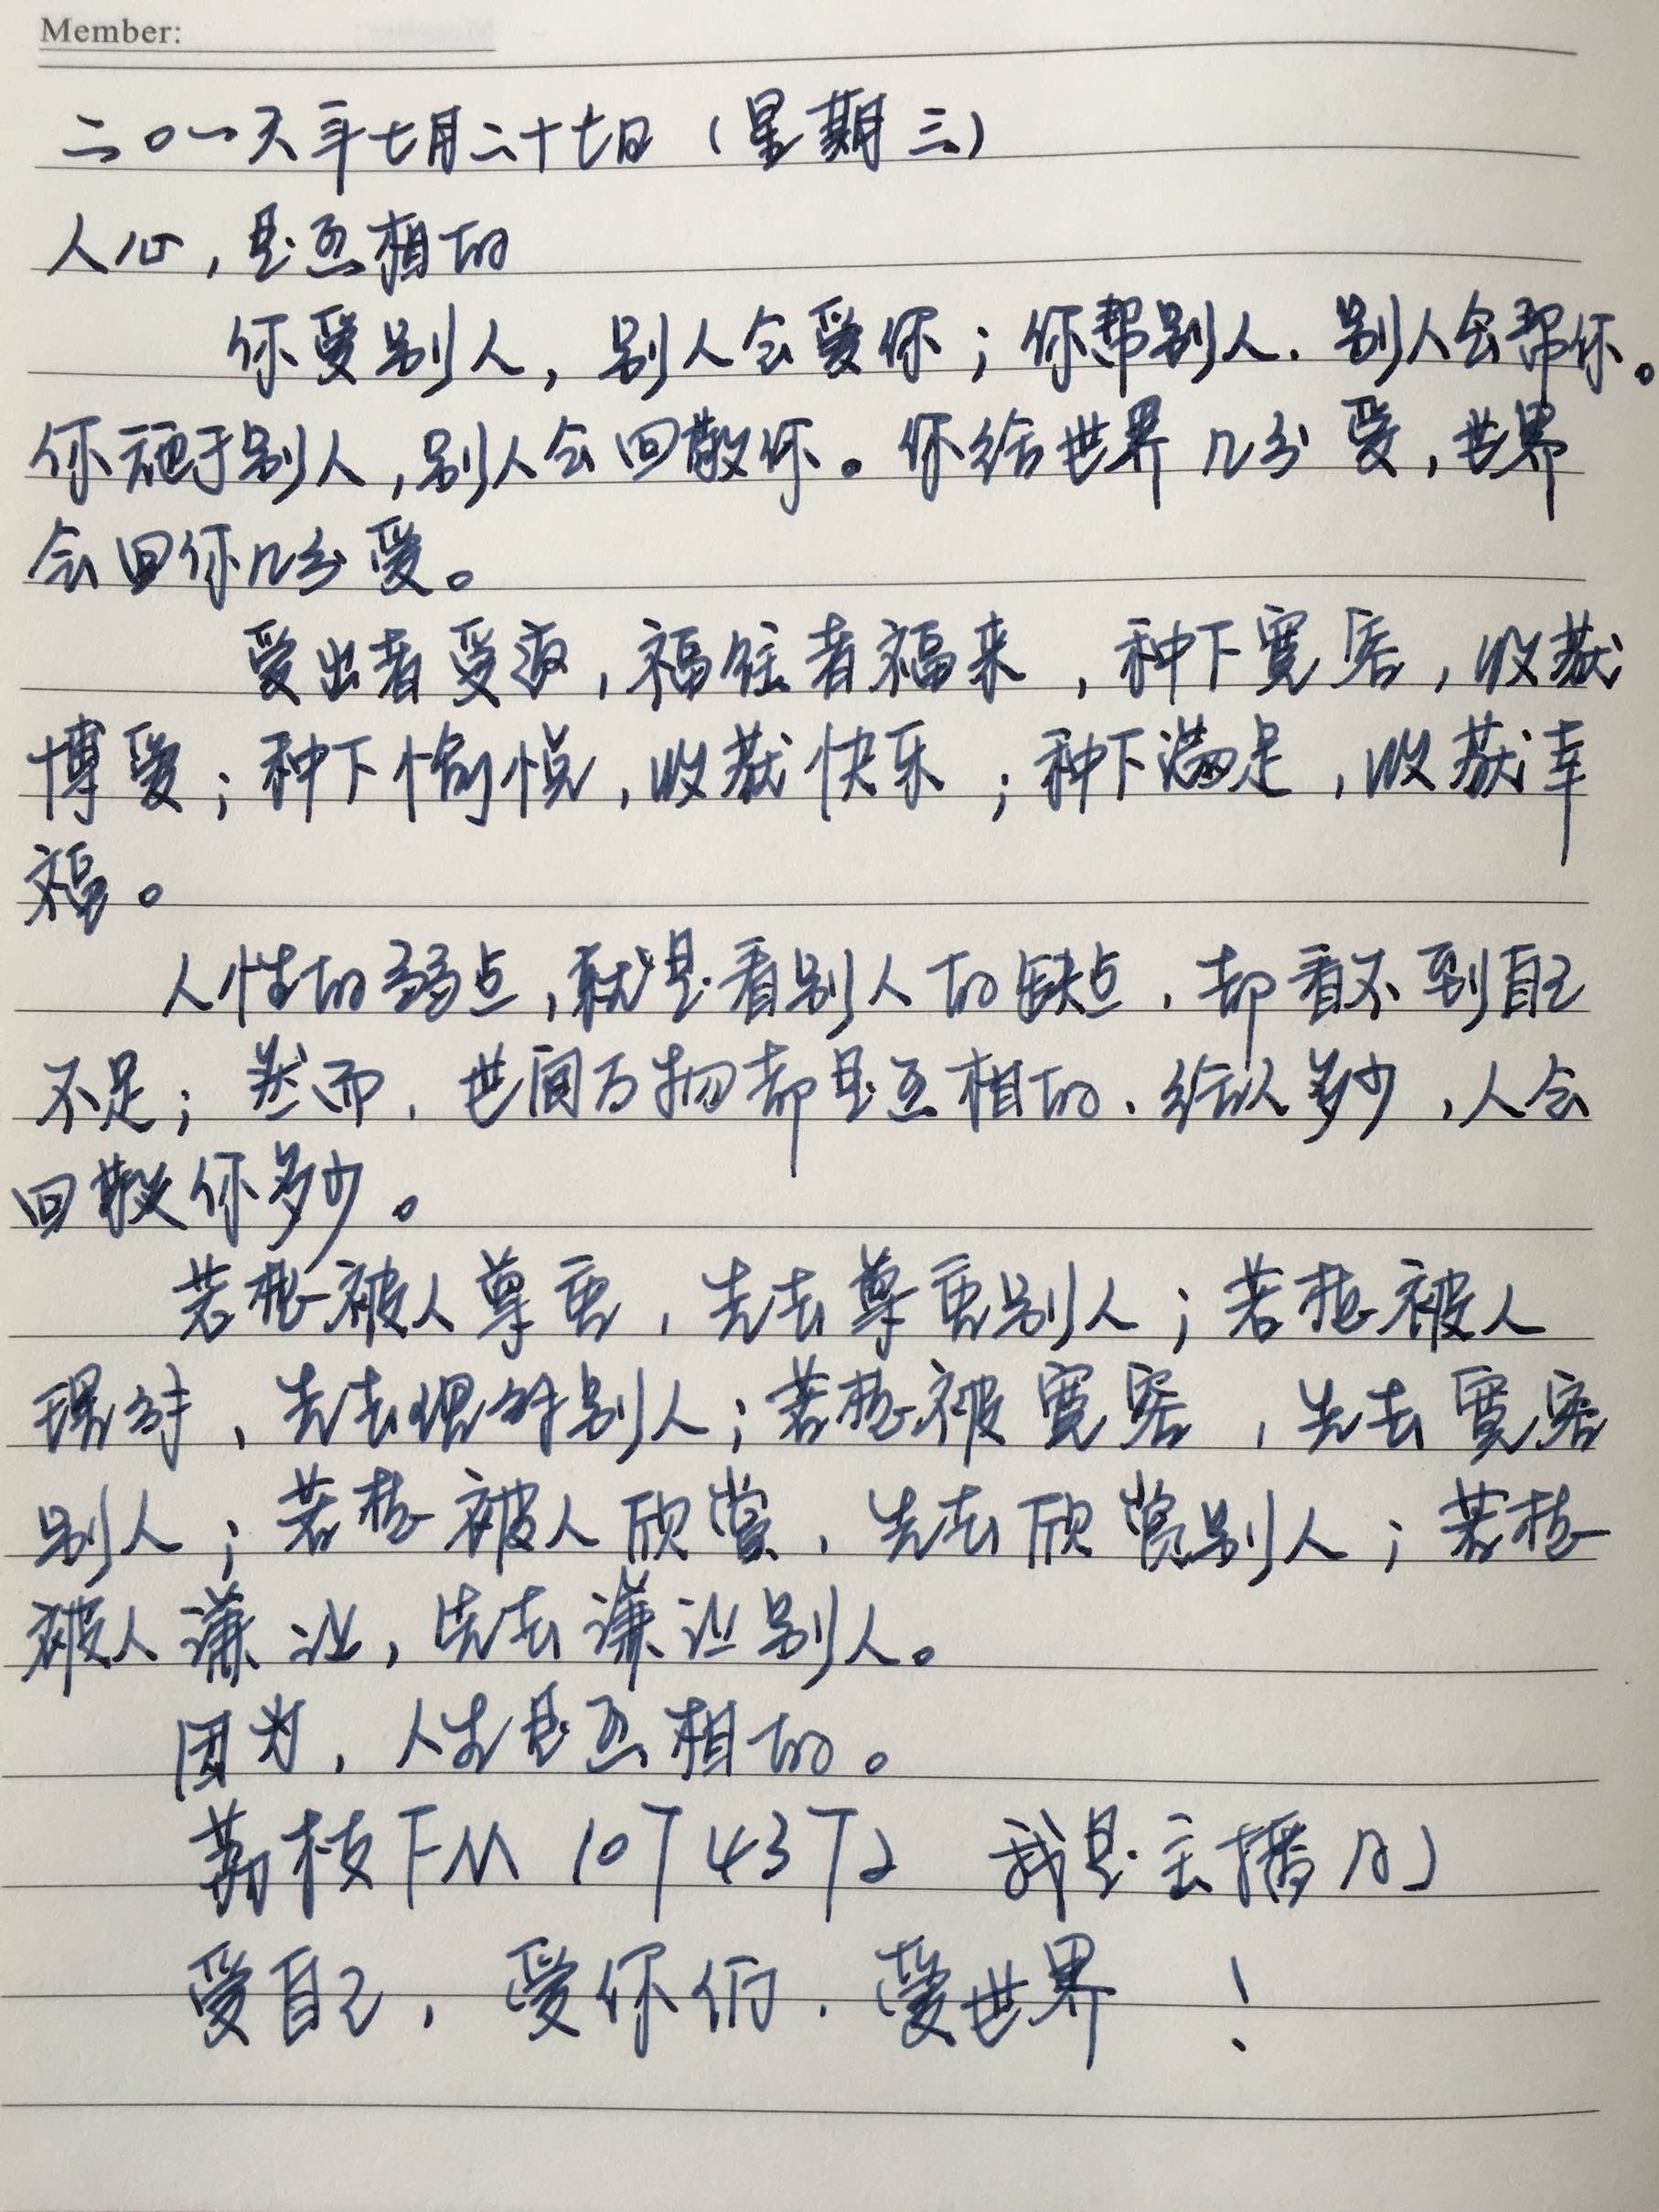 Member:
二〇一六年七月二十七日（星期三）
人心，是互相的
你爱别人，别人会爱你；你帮别人、别人会帮你。
你施于别人，别人会回敬你。你给世界几分爱，世界
会回你几分爱。
爱出者爱返，福往者福来，种下宽容，收获
博爱；种下愉悦，收获快乐；种下满足，收获幸
福。
人性的弱点，就是看别人的缺点，却看不到自己
不足；然而，世间万物却是互相的、给人多少，人会
回敬你多少。
若想被人尊重，先去尊重别人；若想被人
理解、先去理解别人；若想被宽容，先去宽容
别人；若想被人欣赏、先去欣赏别人；若想
被人谦让，先去谦让别人。
因为，人生是互相的。
荔枝FM 1074372 我是主播
爱自己，爱你们、爱世界！